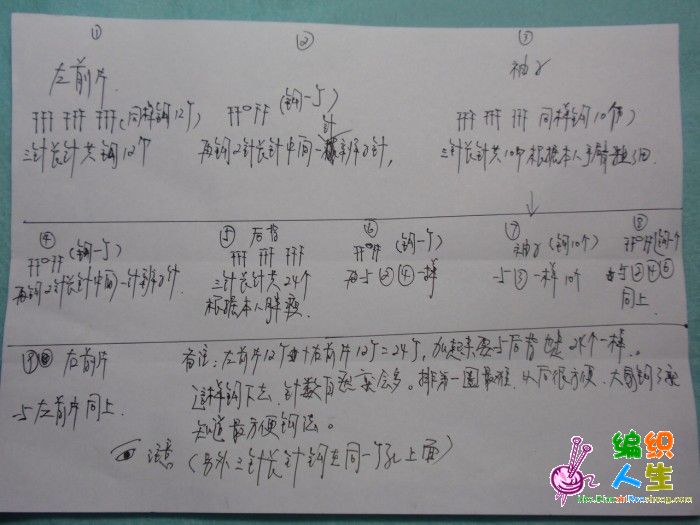 ①
左前片
(同样钩12个)
三针长针共钩12个
②
(钩一个)
针
再钩2针长针中间一针辫子针,
③
袖子
同样钩10个)
三针长针共10个根据本人手臂
④
(钩一个)
再钩2针长针中间一针辫子针
⑤
后背
三针长针共24个
根据本人胖瘦.
⑥
(钩一个)
再与②④一样
⑦
袖子(钩10个)
与③一样10个
⑧
(钩一个
与②④⑥
同上.
⑨ 右前片
与左前片同上.
备注:左前片12个+右前片12个=24个,加起来要与后背也是24个一样.
这样钩下去,针数自然会多。排第一圈最难,以后很方便,大家钩了
知道最方便钩法。
注意
(另外三针长针钩在同一个孔上面)
编织
人生